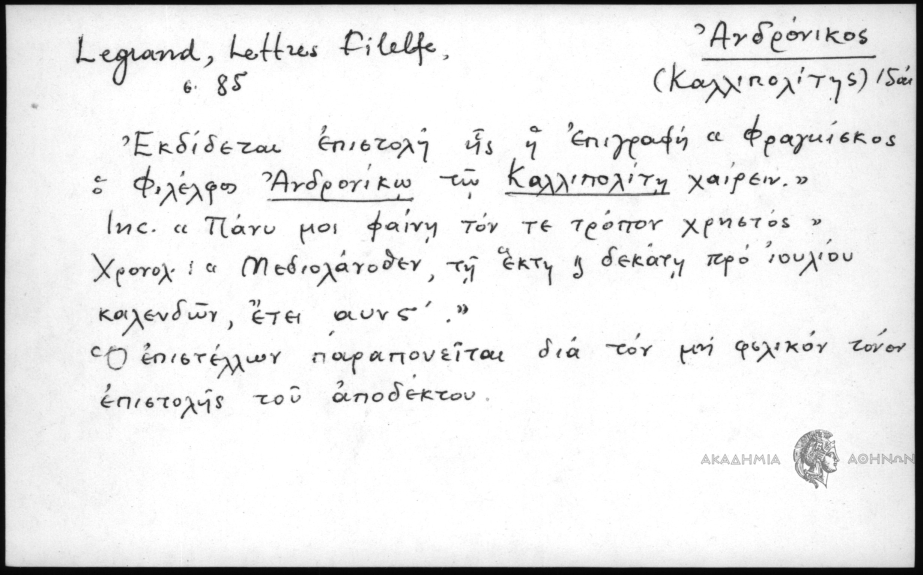 Legrand, Lettres Filelfe,
σ. 85
Ἀνδρόνικος
(Καλλιπολίτης)
Ἐκδίδεται ἐπιστολή ἧς ἡ ἐπιγραφή « Φραγκίσκος
ὁ Φιλέλφος Ἀνδρονίκῳ τῷ Καλλιπολίτῃ χαίρειν.»
Inc. « Πάνυ μοι φαίνῃ τόν τε τρόπον χρηστός »
Χρονολ. : « Μεδιολάνοθεν, τῇ ἕκτῃ ϗ δεκάτῃ πρό ἰουλίου
καλενδῶν, ἔτει αυνς΄.»
Ὁ ἐπιστέλλων παραπονεῖται διά τόν μή φιλικόν τόνον
ἐπιστολῆς τοῦ ἀποδέκτου.
ΑΚΑΔΗΜΙΑ ΑΘΗΝΩΝ